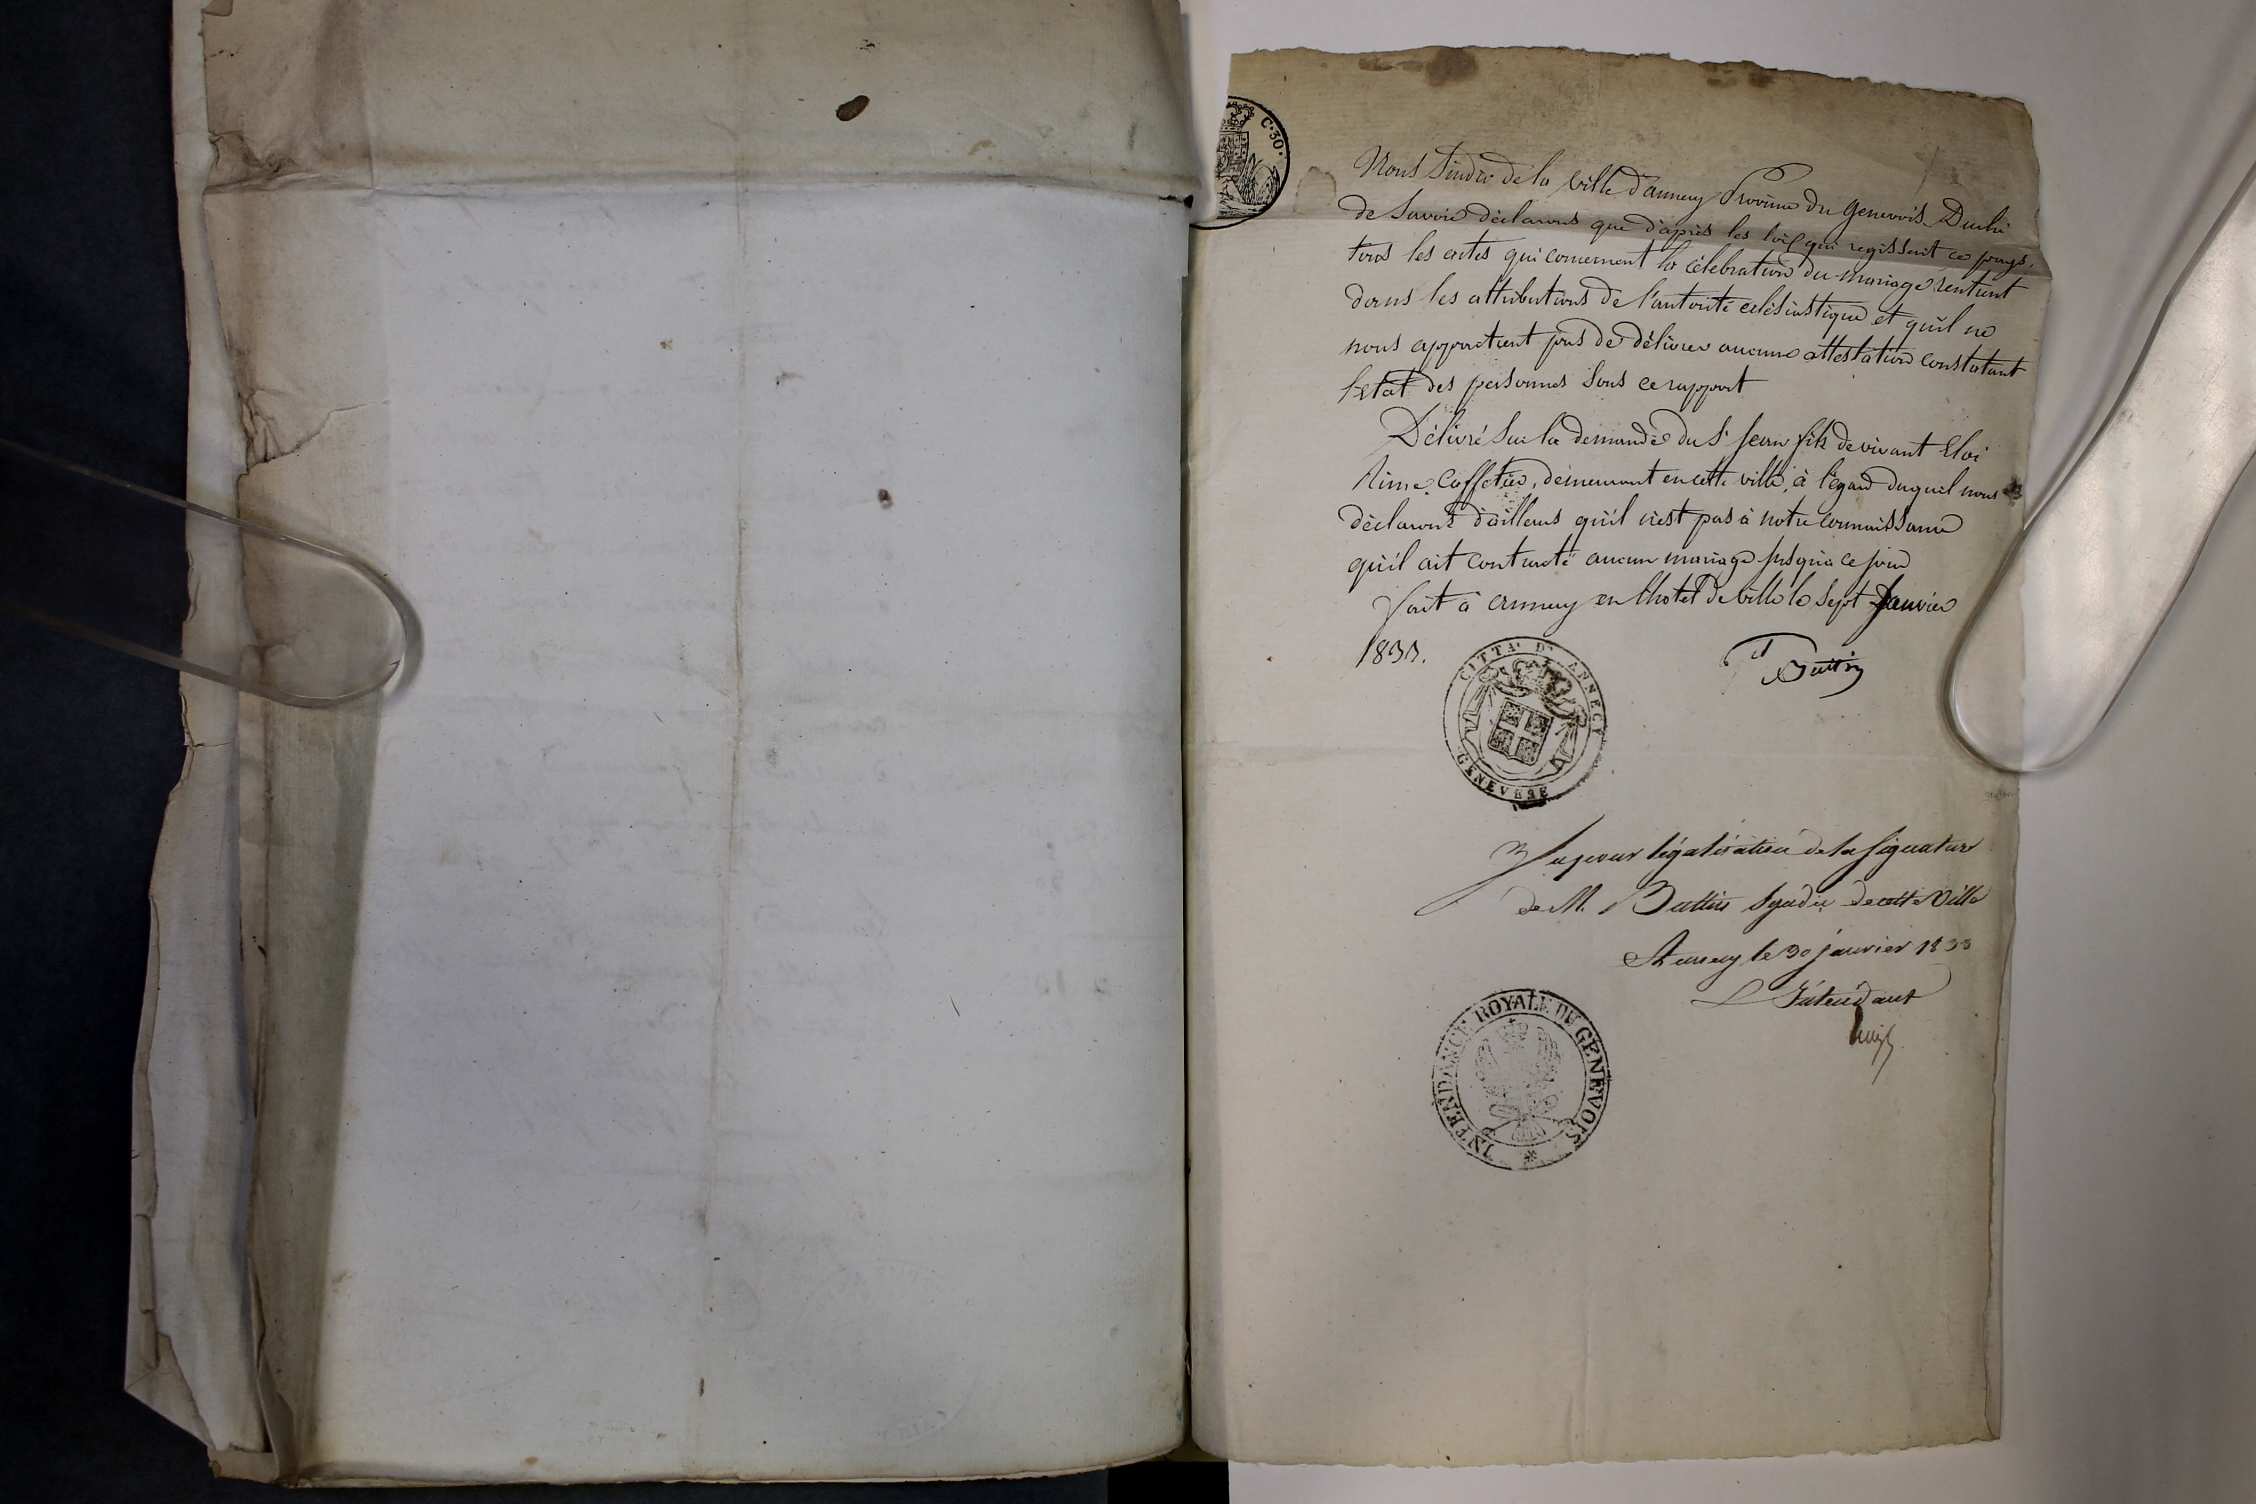 C. 30.
Nous Sindic de la Ville d'annecy Province du Genevois Duché
de Savoie déclarons que d'après les loix qui regissent ce pays,
tous les actes qui concernent la célebration du mariage rentrent
dans les attributions de l'autorité eclésiastique et qu'il ne
nous appartient pas de délivrer aucune attestation constatant
l'etat des personnes sous ce rapport
Délivré sur la demande du Sr Jean fils de vivant Eloi
Aime, Caffetier, demeurant en cette ville, à l'égard duquel nous
déclarons d'ailleurs qu'il n'est pas à notre connaissance
qu'il ait contracté aucun mariage jusqu'à ce jour
fait à annecy en l'hotel de ville le sept Janvier
1833.
CITTA' D' ANNECY
GENEVESE
Vu pour légalisation de la signature
de M. Syndic de cette Ville
Annecy le 30 janvier 1833
L'Intendant
INTENDANCE ROYALE DU GENEVOIS